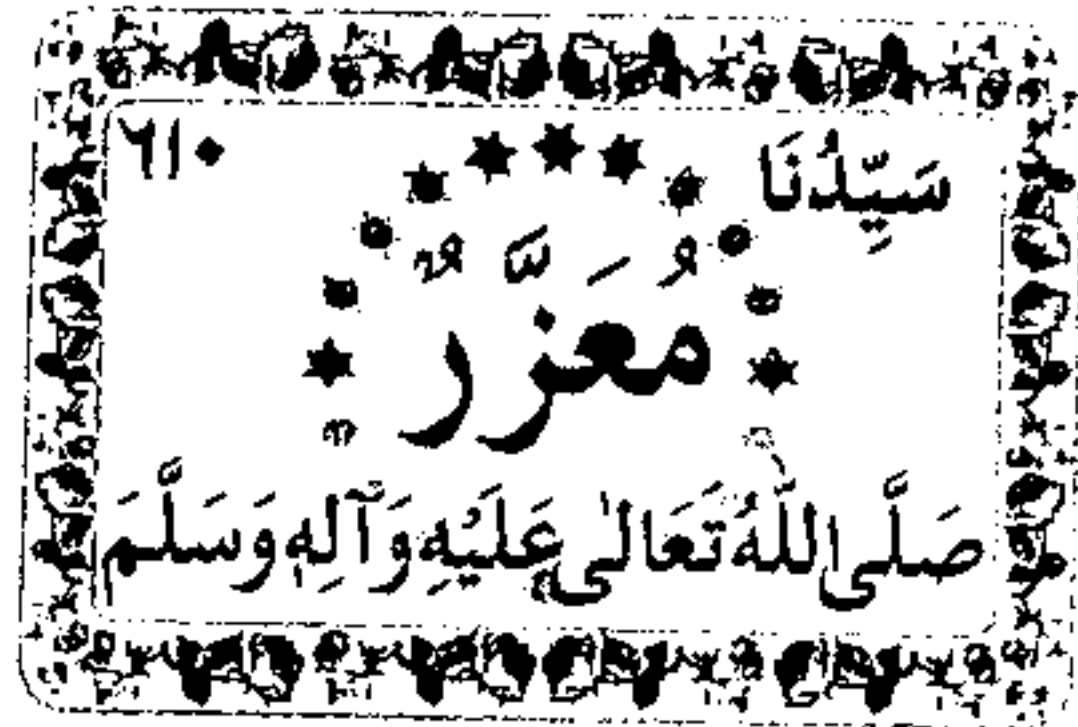 سَيِّدُنَا
٦١٠
مُعَزَّرٌ
صَلَّى اللّٰهُ تَعَالٰى عَلَيْهِ وَآلِهٖ وَسَلَّمَ